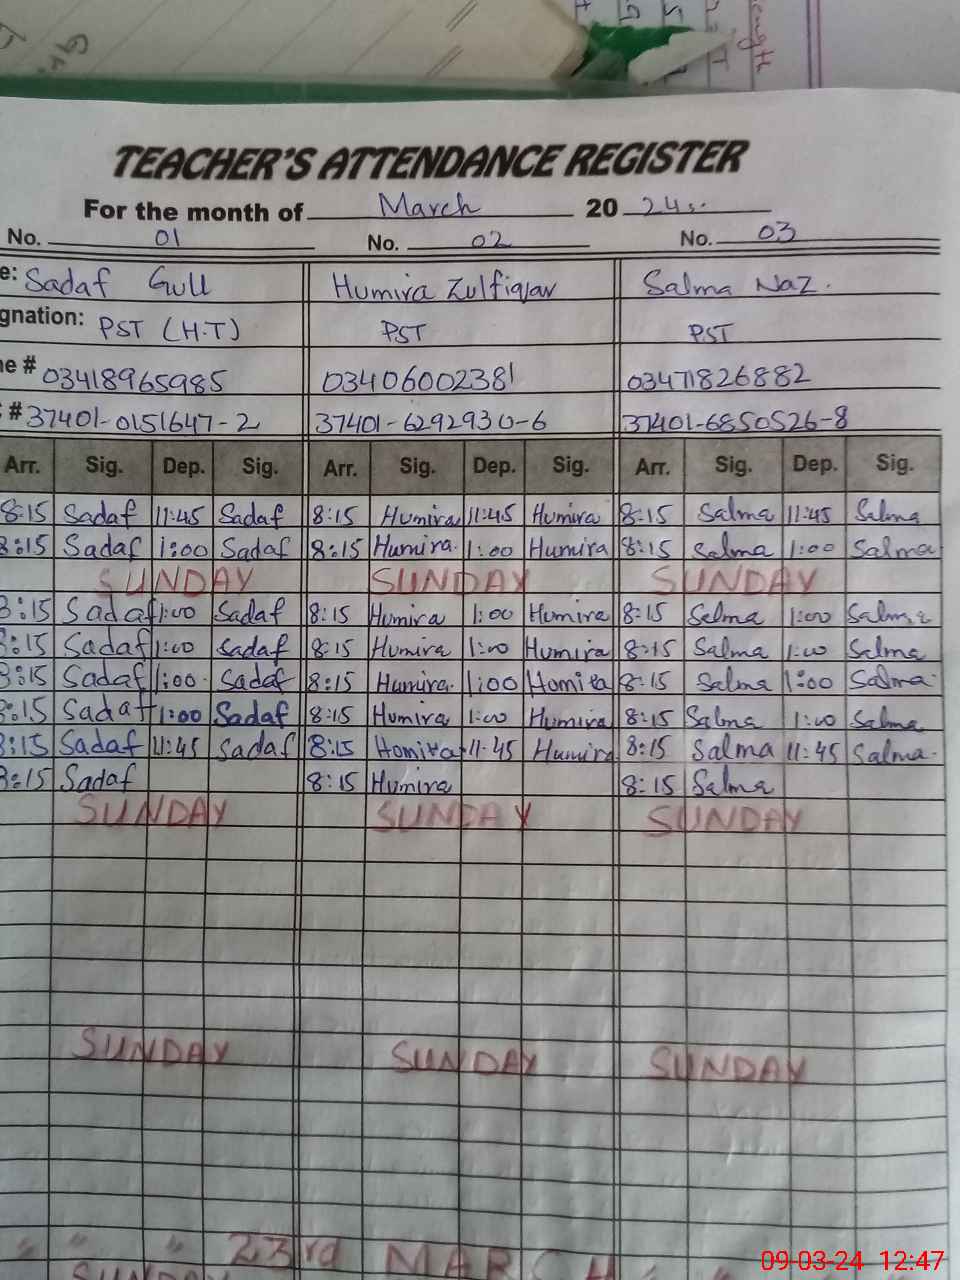 ength
TEACHER'S ATTENDANCE REGISTER
For the month of March 2024
No. 01 No. 02 No. 03
e: Sadaf Gull Humira Zulfiqar Salma Naz.
gnation: PST (H.T) PST PST
ne # 03418965985 03406002381 03471826882
# 37401-0151647-2 37401-6292930-6 37401-6850526-8
Arr. Sig. Dep. Sig. Arr. Sig. Dep. Sig. Arr. Sig. Dep. Sig.
8:15 Sadaf 11:45 Sadaf 8:15 Humira 11:45 Humira 8:15 Salma 11:45 Salma
8:15 Sadaf 1:00 Sadaf 8:15 Humira. 1:00 Humira 8:15 Salma 1:00 Salma
SUNDAY SUNDAY SUNDAY
8:15 Sadaf 1:00 Sadaf 8:15 Humira 1:00 Humira 8:15 Salma 1:00 Salma
8:15 Sadaf 1:00 Sadaf 8:15 Humira 1:00 Humira 8:15 Salma 1:00 Salma
8:15 Sadaf 1:00 Sadaf 8:15 Humira. 1:00 Homira 8:15 Salma 1:00 Salma.
8:15 Sadaf 1:00 Sadaf 8:15 Humira 1:00 Humira 8:15 Salma 1:00 Salma
8:15 Sadaf 11:45 Sadaf 8:15 Homira 11:45 Humira 8:15 Salma 11:45 Salma.
8:15 Sadaf 8:15 Humira 8:15 Salma
SUNDAY SUNDAY SUNDAY
SUNDAY SUNDAY SUNDAY
" " " 23rd MARCH " "
SUNDAY
09-03-24 12:47